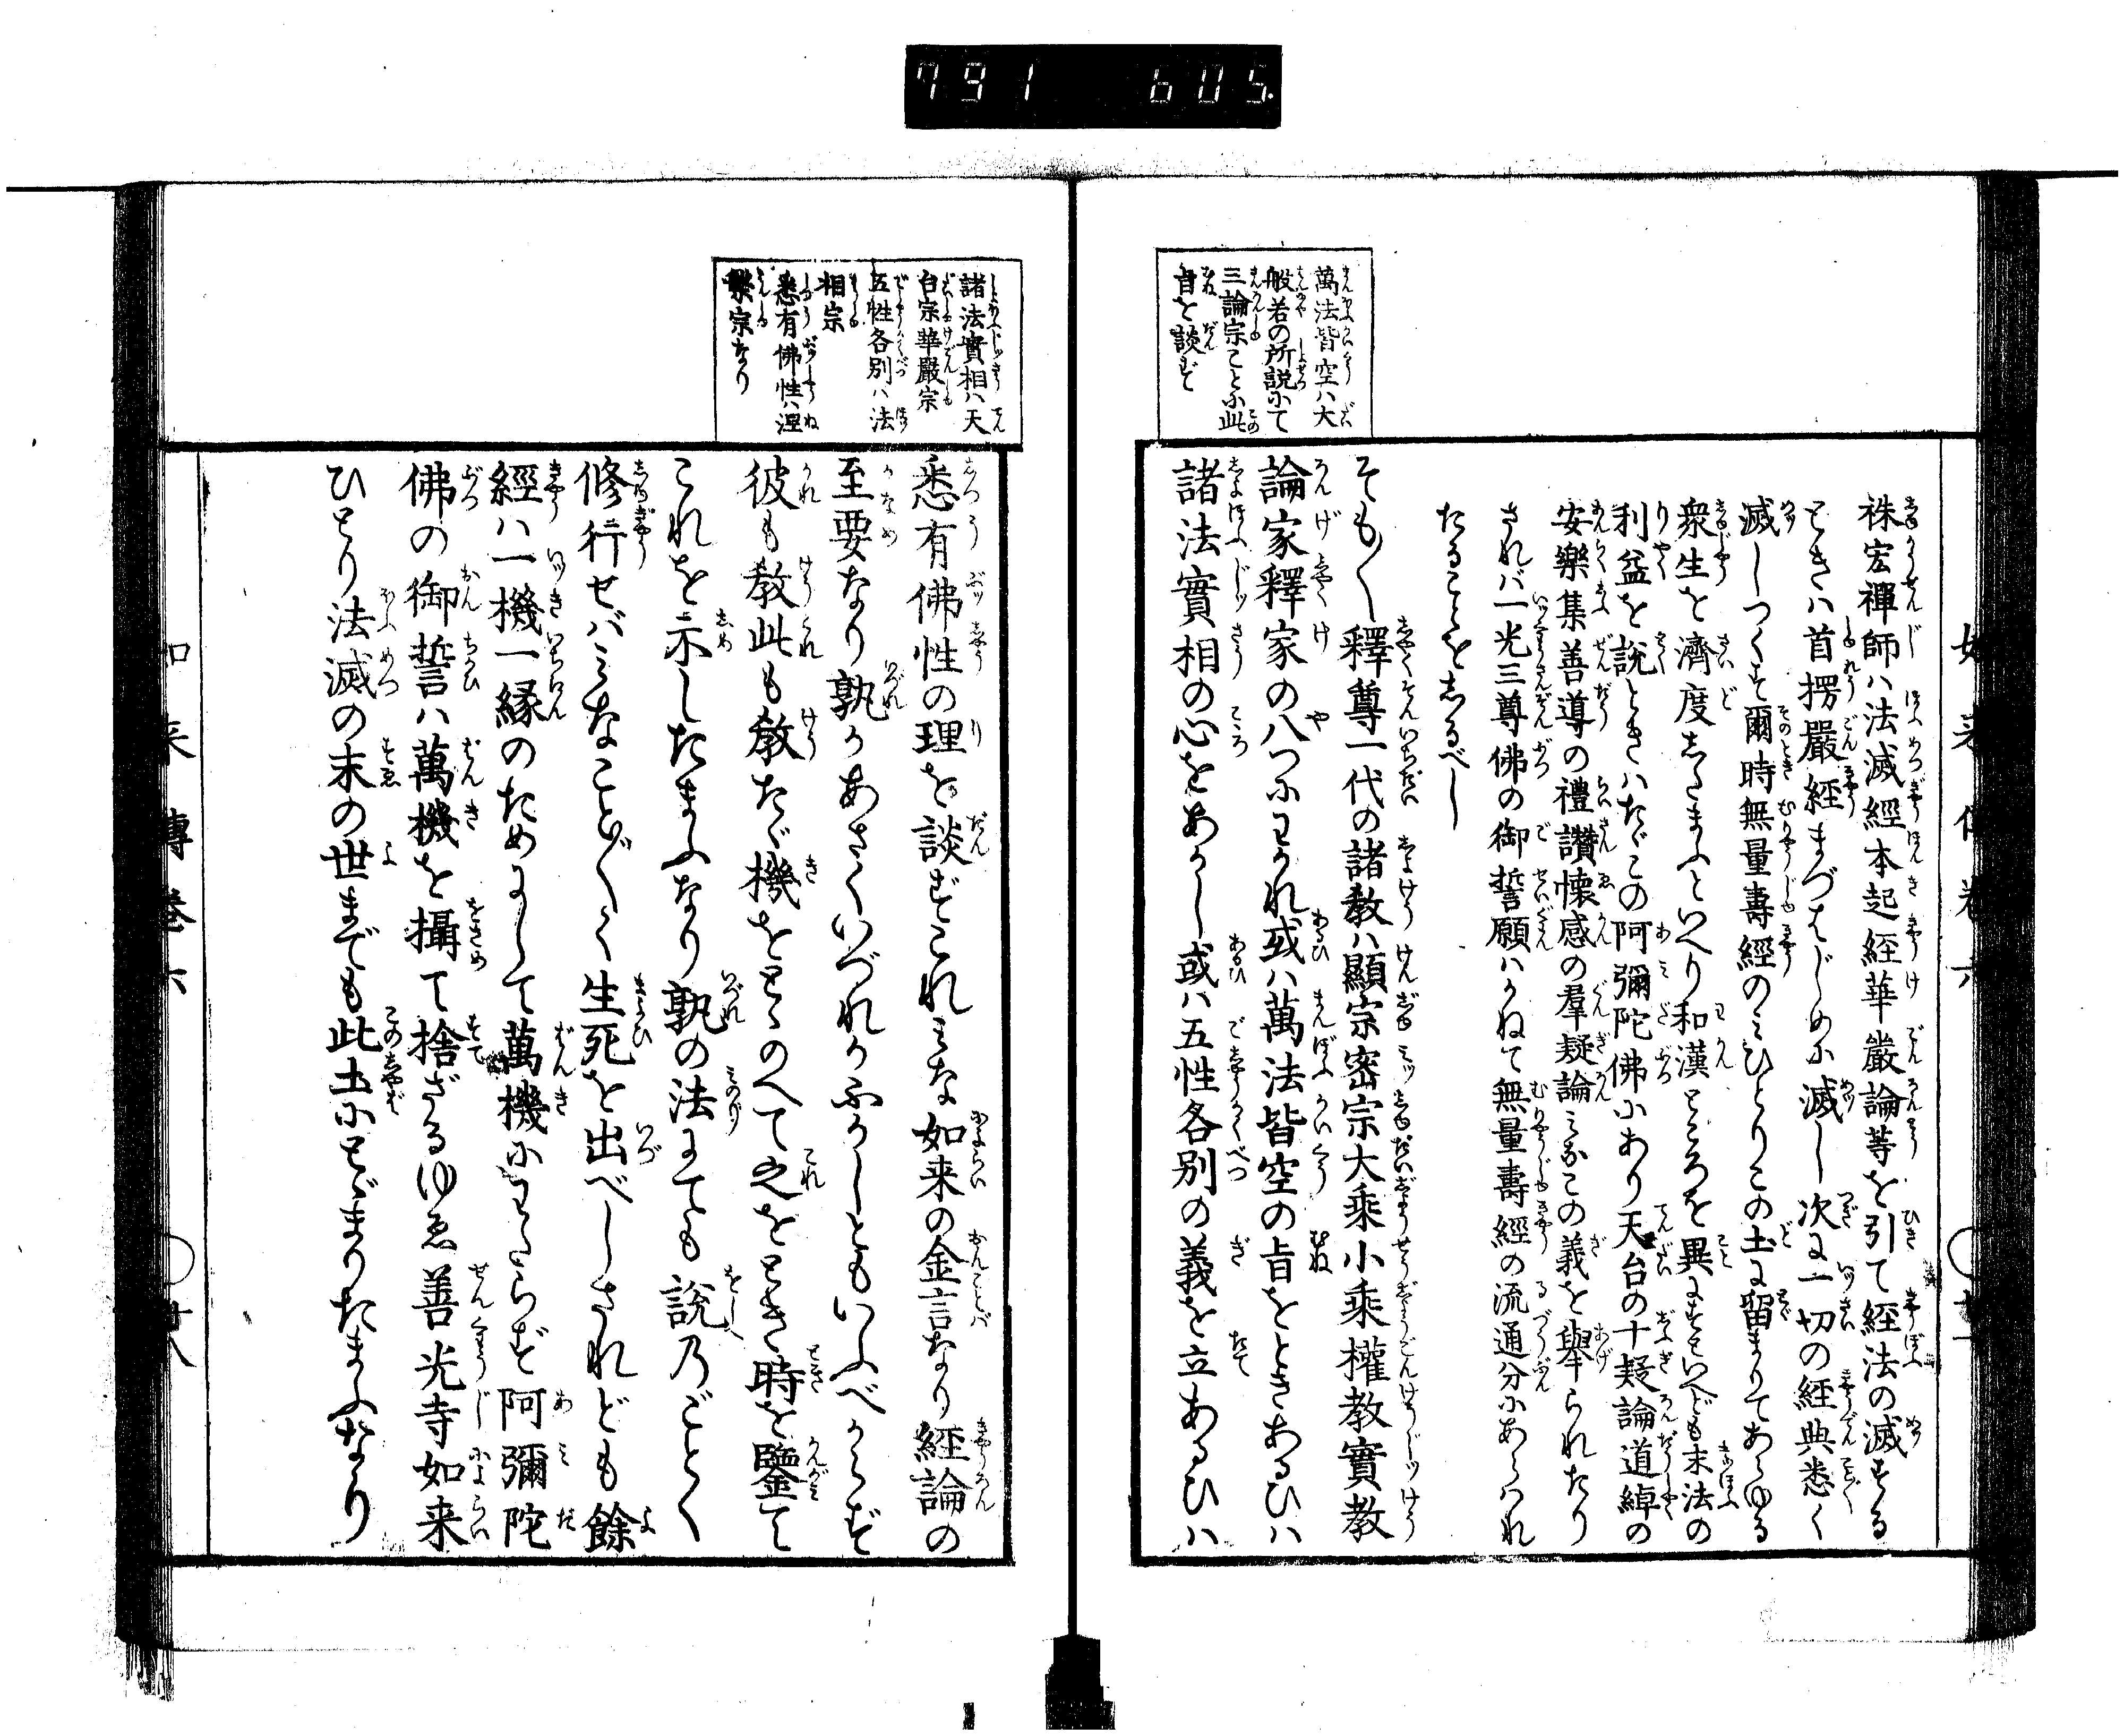 791 605
萬法皆空ハ大
般若の所説にて
三論宗ことに此
旨を談ず
袾宏禪師ハ法滅經本起経華嚴論等を引て経法の滅する
ときハ首楞嚴経まづはじめに滅し次に一切の経典悉く
滅しつくす爾時無量壽經のミひとりこの土に留まりてあらゆる
衆生を濟度したまふといへり和漢ところを異にすといへども末法の
利益を説ときハたゞこの阿彌陀佛にあり天台の十疑論道綽の
安樂集善導の禮讚懐感の羣疑論ミなこの義を舉られたり
されバ一光三尊佛の御誓願ハかねて無量壽經の流通分にあらハれ
たることをしるべし
そも〳〵釋尊一代の諸教ハ顯宗密宗大乘小乘權教實教
論家釋家の八つにわかれ或ハ萬法皆空の旨をときあるひハ
諸法實相の心をあかし或ハ五性各別の義を立あるひハ
諸法實相ハ天
台宗華嚴宗
五性各別ハ法
相宗
悉有佛性ハ涅
槃宗なり
悉有佛性の理を談ずこれミな如来の金言なり経論の
至要なり孰かあさくいづれかふかしともいふべからず
彼も教此も教たゞ機をとゝのへて之をとき時を鑒て
これを示したまふなり孰の法にても説乃ごとく
修行せバミなこと〴〵く生死を出べしされども餘
經ハ一機一縁のためにして萬機にわたらず阿彌陀
佛の御誓ハ萬機を攝て捨ざるゆゑ善光寺如来
ひとり法滅の末の世までも此土にとゞまりたまふなり
如来傳卷六